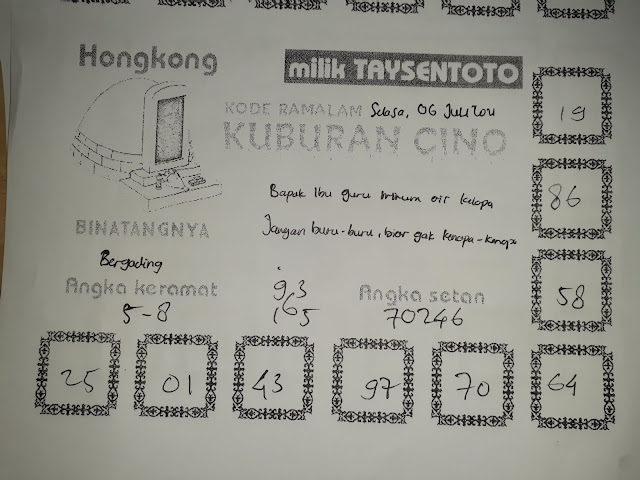 Hongkong
milik TAYSENTOTO
KODE RAMALAN Selasa, 06 Juli 2021
KUBURAN CINO
19
Bapak Ibu guru minum air kelapa
86
Jangan buru-buru, biar gak kenapa-kenapa
BINATANGNYA
Bergading
Angka keramat
5-8
9.3
165
Angka setan
70246
58
25
01
43
97
70
64